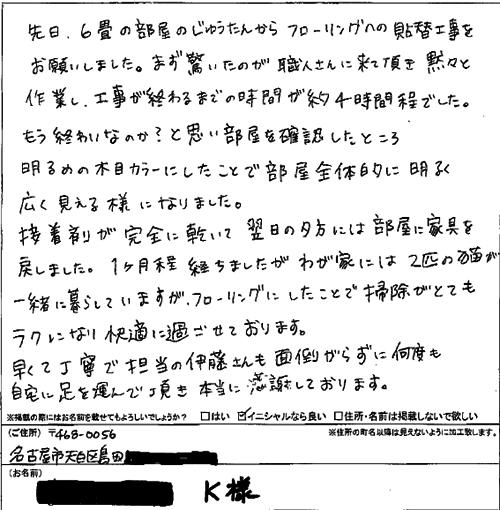 先日、6畳の部屋のじゅうたんからフローリングへの貼替工事を
お願いしました。まず驚いたのが職人さんに来て頂き黙々と
作業し、工事が終わるまでの時間が約4時間程でした。
もう終わりなのか?と思い部屋を確認したところ
明るめの木目カラーにしたことで部屋全体的に明るく
広く見える様になりました。
接着剤が完全に乾いて翌日の夕方には部屋に家具を
戻しました。1ヶ月程経ちましたがわが家には2匹の猫が
一緒に暮らしていますが、フローリングにしたことで掃除がとても
ラクになり快適に過ごせております。
早くて丁寧で担当の伊藤さんも面倒がらずに何度も
自宅に足を運んで頂き本当に感謝しております。
※掲載の際にはお名前を載せてもよろしいでしょうか? □はい ☑イニシャルなら良い □住所・名前は掲載しないで欲しい
(ご住所) 〒468-0056 ※住所の町名以降は見えないように加工致します。
名古屋市天白区島田
(お名前)
K様